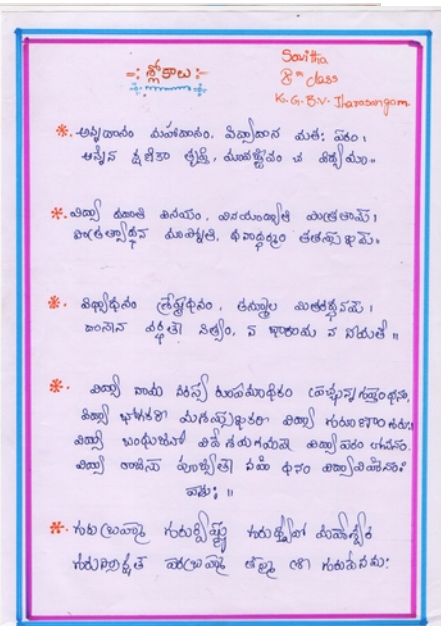 -: శ్లోకాలు :-
Savitha
8th class
K.G.B.V. Tharasangam
*. అన్నదానం మహాదానం, విద్యాదాన మతః పరం।
అన్నేన క్షణికా తృప్తి, ర్యావజ్జీవం చ విద్యయా॥
*. విద్యా దదాతి వినయం, వినయాద్యాతి పాత్రతామ్।
పాత్రత్వాద్ధన మాప్నోతి, ధనాద్ధర్మం తతస్సుఖమ్॥
*. విద్యాధనం శ్రేష్ఠధనం, తన్మూల మితరద్ధనమ్।
దానేన వర్ధతే నిత్యం, న భారాయ న నీయతే॥
*. విద్యా నామ నరస్య రూపమధికం ప్రచ్ఛన్నగుప్తంధనం,
విద్యా భోగకరీ యశస్సుఖకరీ విద్యా గురూణాం గురుః।
విద్యా బంధుజనో విదేశగమనే విద్యా పరం దైవతం.
విద్యా రాజసు పూజ్యతే నహి ధనం విద్యావిహీనః
పశుః॥
*. గురుబ్రహ్మ గురుర్విష్ణు గురుదేవో మహేశ్వర
గురుసాక్షాత్ పరబ్రహ్మ తస్మై శ్రీ గురువేనమః